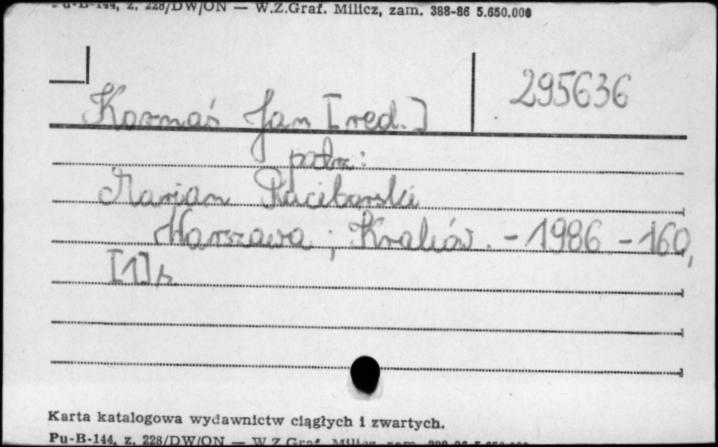 Pu-B-144, z. 228/DW/ON — W.Z.Graf. Milicz, zam. 388-86 5.650.000
295636
Kornaś Jan [red.]
patrz:
Marian Raciborski
Warszawa ; Kraków. - 1986 - 160,
[1] s.
Karta katalogowa wydawnictw ciągłych i zwartych.
Pu-B-144, z. 228/DW/ON — W.Z.Graf. Milicz, zam. 388-86 5.650.000